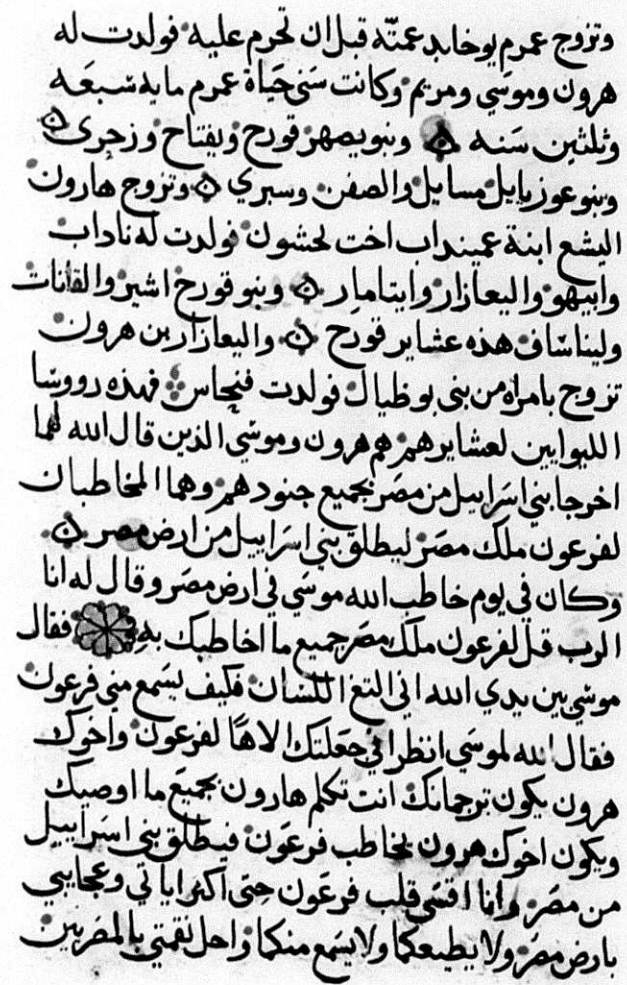 وتزوج عمرم يوخابد عمتّه قبل ان تحرم عليه فولدت له
هرون وموسي ومريم وكانت سَني حَياة عمرم مايه سَبعَه
وثلثين سَنه وبنو يصهر قورح ويفتاح وزجري
وبنو عوزيايل مسايل والصفن وسبري وتزوج هارون
اليشع ابنة عميناداب اخت لحشون فولدت له ناداب
وابيهو واليعازار وايتامار وبنو قورح اشير والقانات
وليناسَاف هذه عشاير قورح واليعازار بن هرون
تزوج بامراه من بني بوظيال فولدت فنحاس فهذه رووسَا
الليوايين لعشايرهم هم هرون وموسي الذين قال الله لهما
اخرجا بني اسَراييل من مصر بجميع جنودهم وهما المخاطبان
لفرعون ملك مصَر ليطلق بني اسَراييل من ارض مصر
وكان في يوم خاطب الله موسَي في ارض مصَر وقال له انا
الرب قل لفرعون ملك مصَر جميع ما اخاطبك به فقال
موسَي بين يدي الله اني التغ اللسَان فكيف يسَمع مني فرعون
فقال الله لموسَي انظر اني جَعلتك الاهًا لفرعون واخوك
هرون يكون ترجمانك انت تكلم هارون بجميَع ما اوصيك
ويكون اخوك هرون يخاطب فرعَون فيطلق بني اسَراييل
من مصَر وانا اقسَي قلب فرعَون حتى اكثر اياتي وعجايبي
بارض مصَر ولا يطيعكما ولا يسَمع منكما واحل نقمتي بالمصَريين